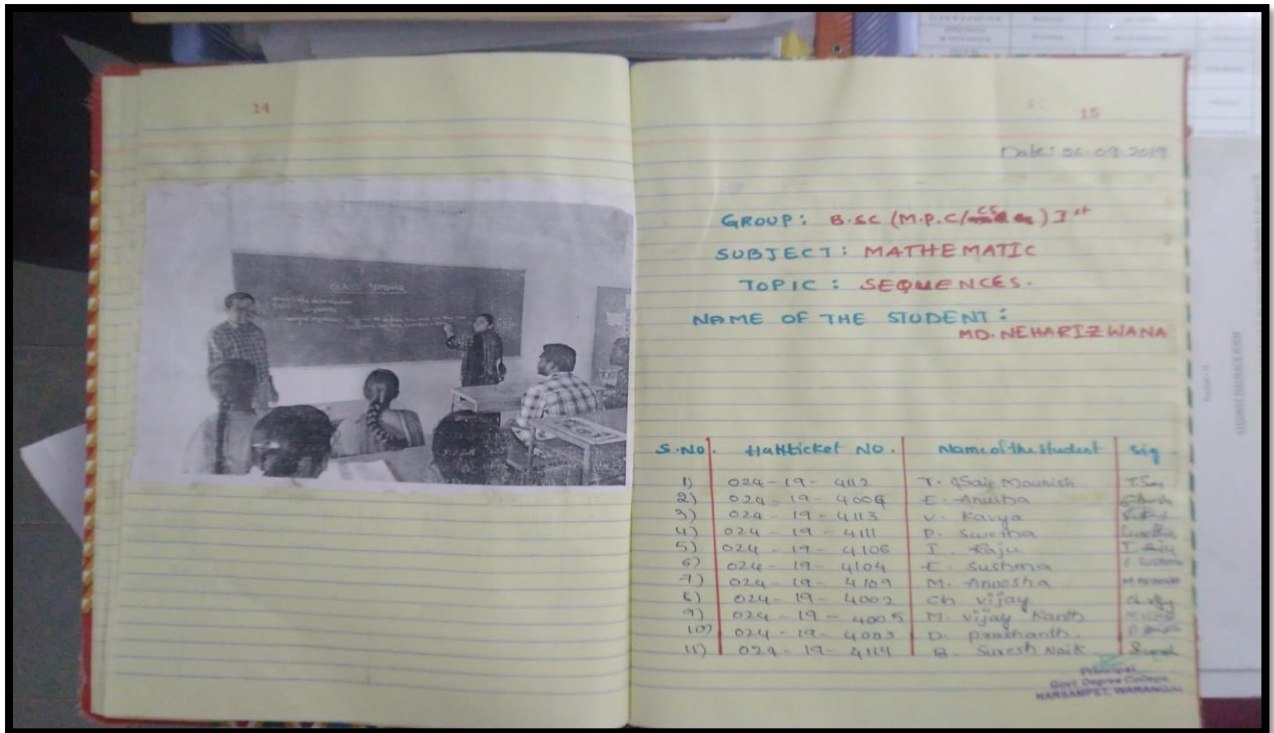 14
CLASS SEMINAR
15
Date: 06-09-2019
GROUP: B.SC (M.P.C/CS) Ist
SUBJECT: MATHEMATIC
TOPIC: SEQUENCES.
NAME OF THE STUDENT:
MD. NEHARIZWANA
S.No. Hallticket No. Name of the student Sig
1) 024-19-4112 T. Sai Mounish T.Sai
2) 024-19-4004 E. Anusha
3) 024-19-4113 V. Kavya
4) 024-19-4111 P. Swetha
5) 024-19-4106 I. Raju
6) 024-19-4104 E. Sushma E Sushma
7) 024-19-4109 M. Anoosha
8) 024-19-4002 Ch vijay
9) 024-19-4005 M. vijay Kanth
10) 024-19-4003 D. prashanth.
11) 024-19-4114 B. Suresh Naik
Principal
Govt Degree College
NARSAMPET, WARANGAL